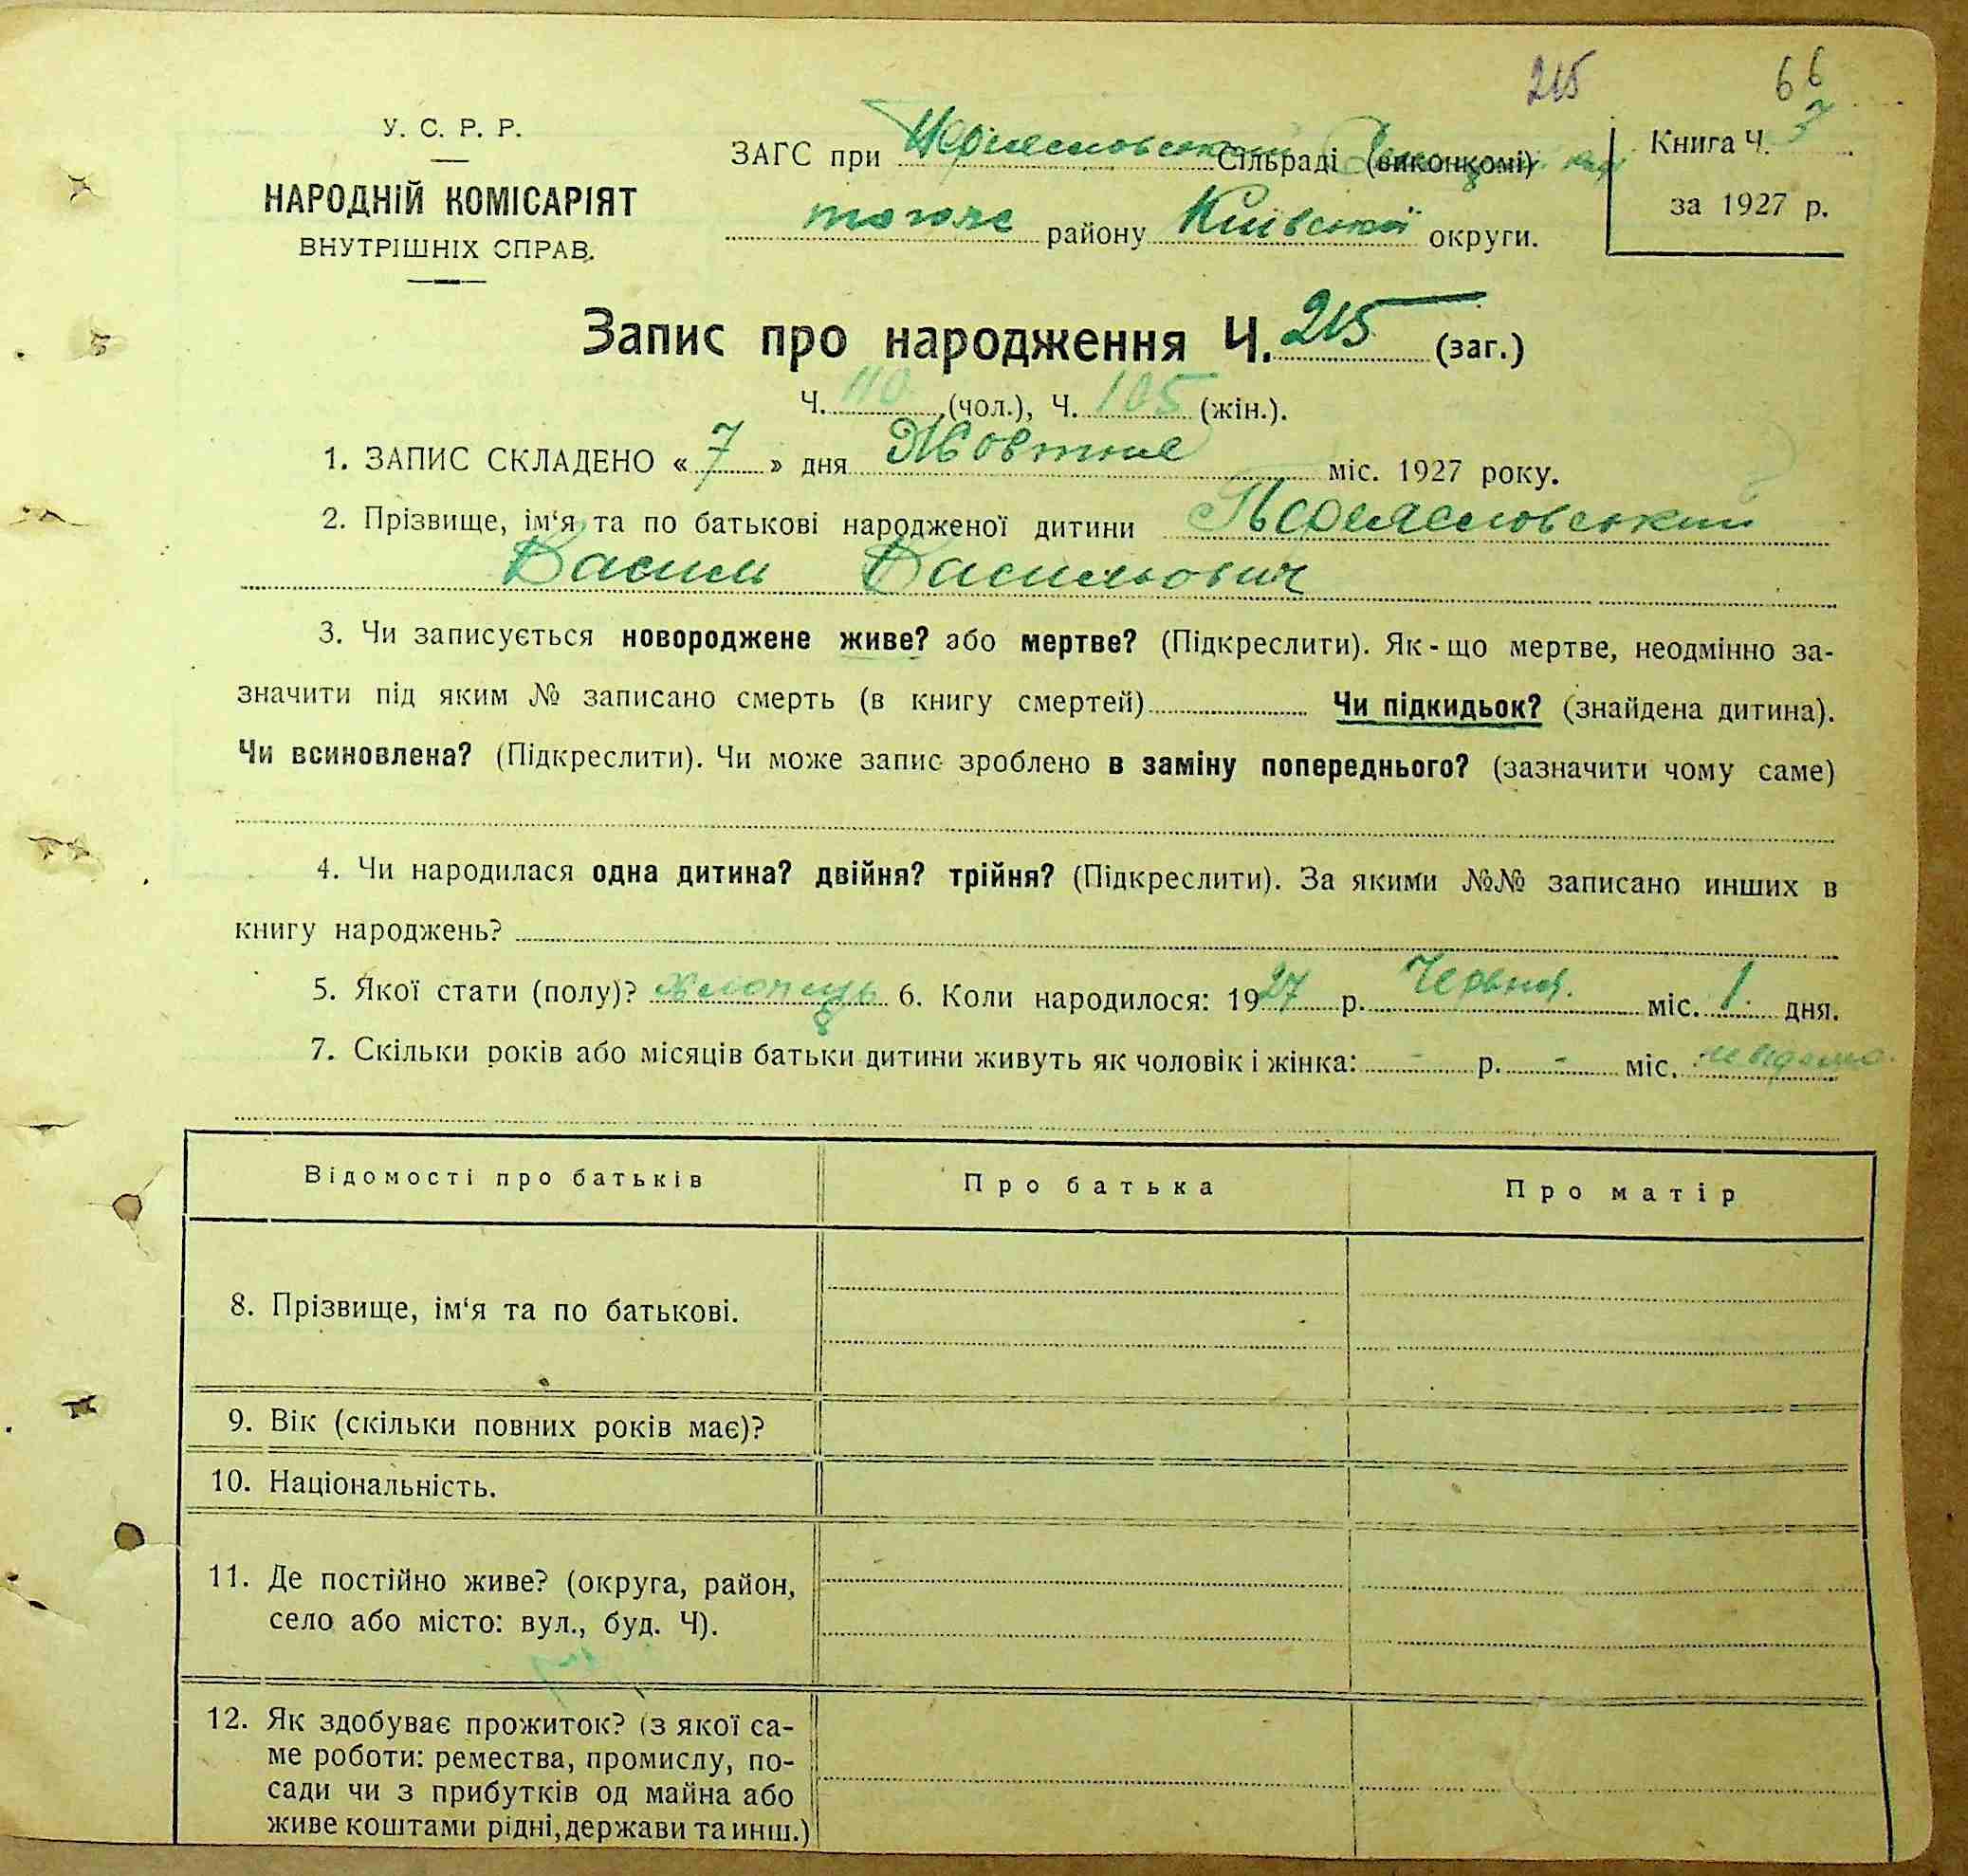 215 66
У. С. Р. Р.
НАРОДНІЙ КОМІСАРІЯТ
ВНУТРІШНІХ СПРАВ.
ЗАГС при Сільраді (виконкомі)
тогоже району Київської округи.
Книга Ч. 3
за 1927 р.
Запис про народження Ч. 215 (заг.)
Ч. 110 (чол.), Ч. 105 (жін.).
1. ЗАПИС СКЛАДЕНО « 7 » дня Жовтня міс. 1927 року.
2. Прізвище, ім‘я, та по батькові народженої дитини Переяславський
Василь Васильович
3. Чи записується новороджене живе? або мертве? (Підкреслити). Як-що мертве, неодмінно за-
значити під яким № записано смерть (в книгу смертей) Чи підкидьок? (знайдена дитина).
Чи всиновлена? (Підкреслити). Чи може запис зроблено в заміну попереднього? (зазначити чому саме)
4. Чи народилася одна дитина? двійня? трійня? (Підкреслити). За якими №№ записано инших в
книгу народжень?
5. Якої стати (полу)? хлопець 6. Коли народилося: 1927 р. Червня. міс. 1. дня.
7. Скільки років або місяців батьки дитини живуть як чоловік і жінка: - р. - міс. невідомо.
Відомості про батьків Про батька Про матір
8. Прізвище, ім‘я та по батькові.
9. Вік (скільки повних років має)?
10. Національність.
11. Де постійно живе? (округа, район,
село або місто: вул., буд. Ч).
12. Як здобуває прожиток? (з якої са-
ме роботи: ремества, промислу, по-
сади чи з прибутків од майна або
живе коштами рідні, держави та инш.)